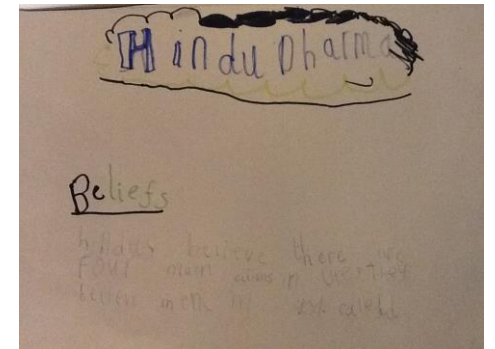 Hindu Dharma
Beliefs
hindus believe there are
Four main aims in
believe in